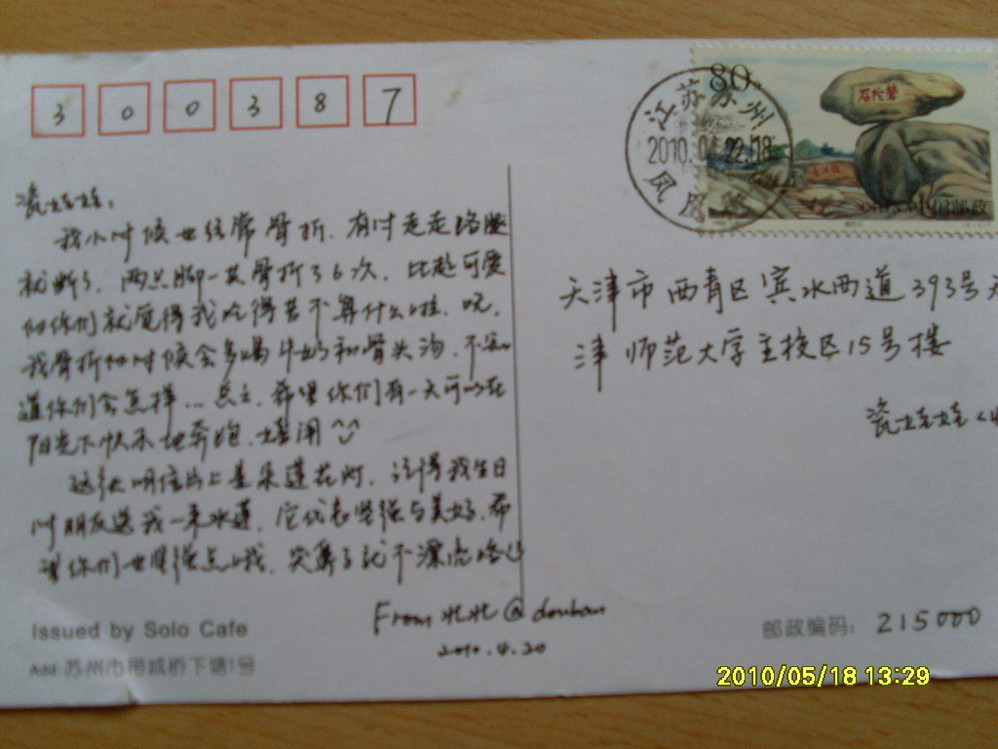 300387
80
石陀磐
江苏苏州
2010.04.22.18
中国邮政
瓷娃娃：
我小时候也经常骨折，有时走走路腿
就断了，两只脚一共骨折了6次，比起可爱
的你们就觉得我吃得苦不算什么啦。呃，
我骨折的时候会多喝牛奶和骨头汤，不知
道你们会怎样...总之，希望你们有一天可以在
阳光下快乐地奔跑、嬉闹
这张明信片上是朵莲花灯，记得我生日
时朋友送我一朵水莲，它代表坚强与美好，希
望你们也坚强点哦，哭鼻子就不漂亮咯
From 北北@douban
2010.4.20
天津市西青区宾水西道393号天
津师范大学主校区15号楼
瓷娃娃
Issued by Solo Cafe
Add:苏州市相城桥下塘1号
邮政编码：215000
2010/05/18 13:29